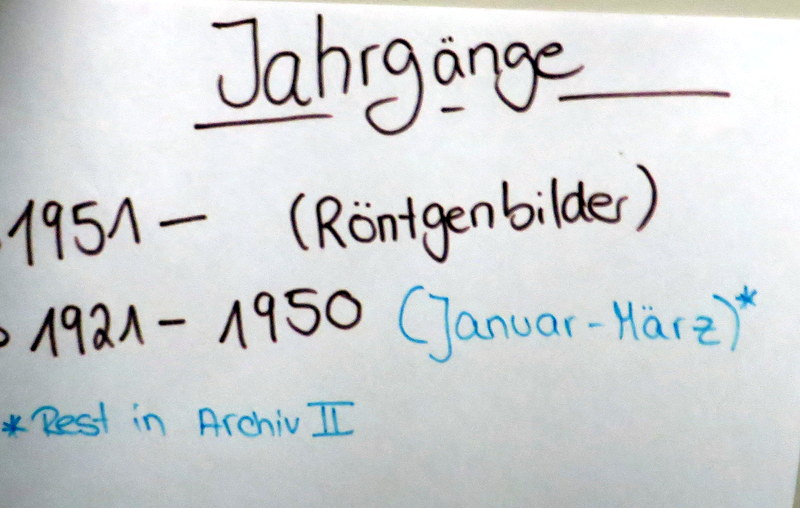 Jahrgänge
1951 – (Röntgenbilder)
1921 – 1950 (Januar - März)*
* Rest in Archiv II